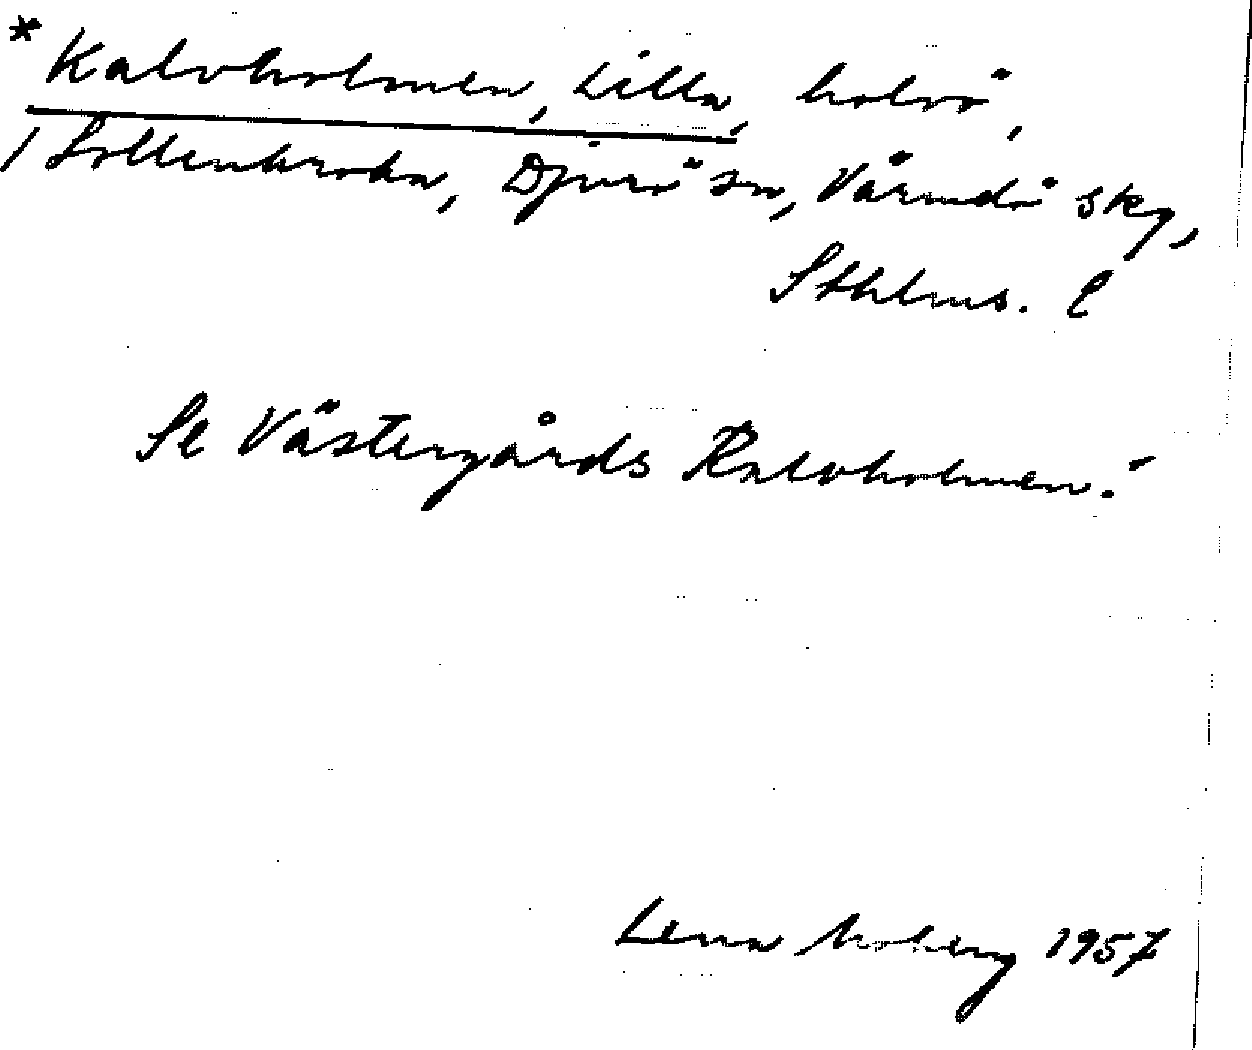 *Kalvholmen, Lilla, halvö,
/ Sollenkroka, Djurö sn, Värmdö skg,
Sthlms. l
Se Västergårds Kalvholmen!
Lena Moberg 1957